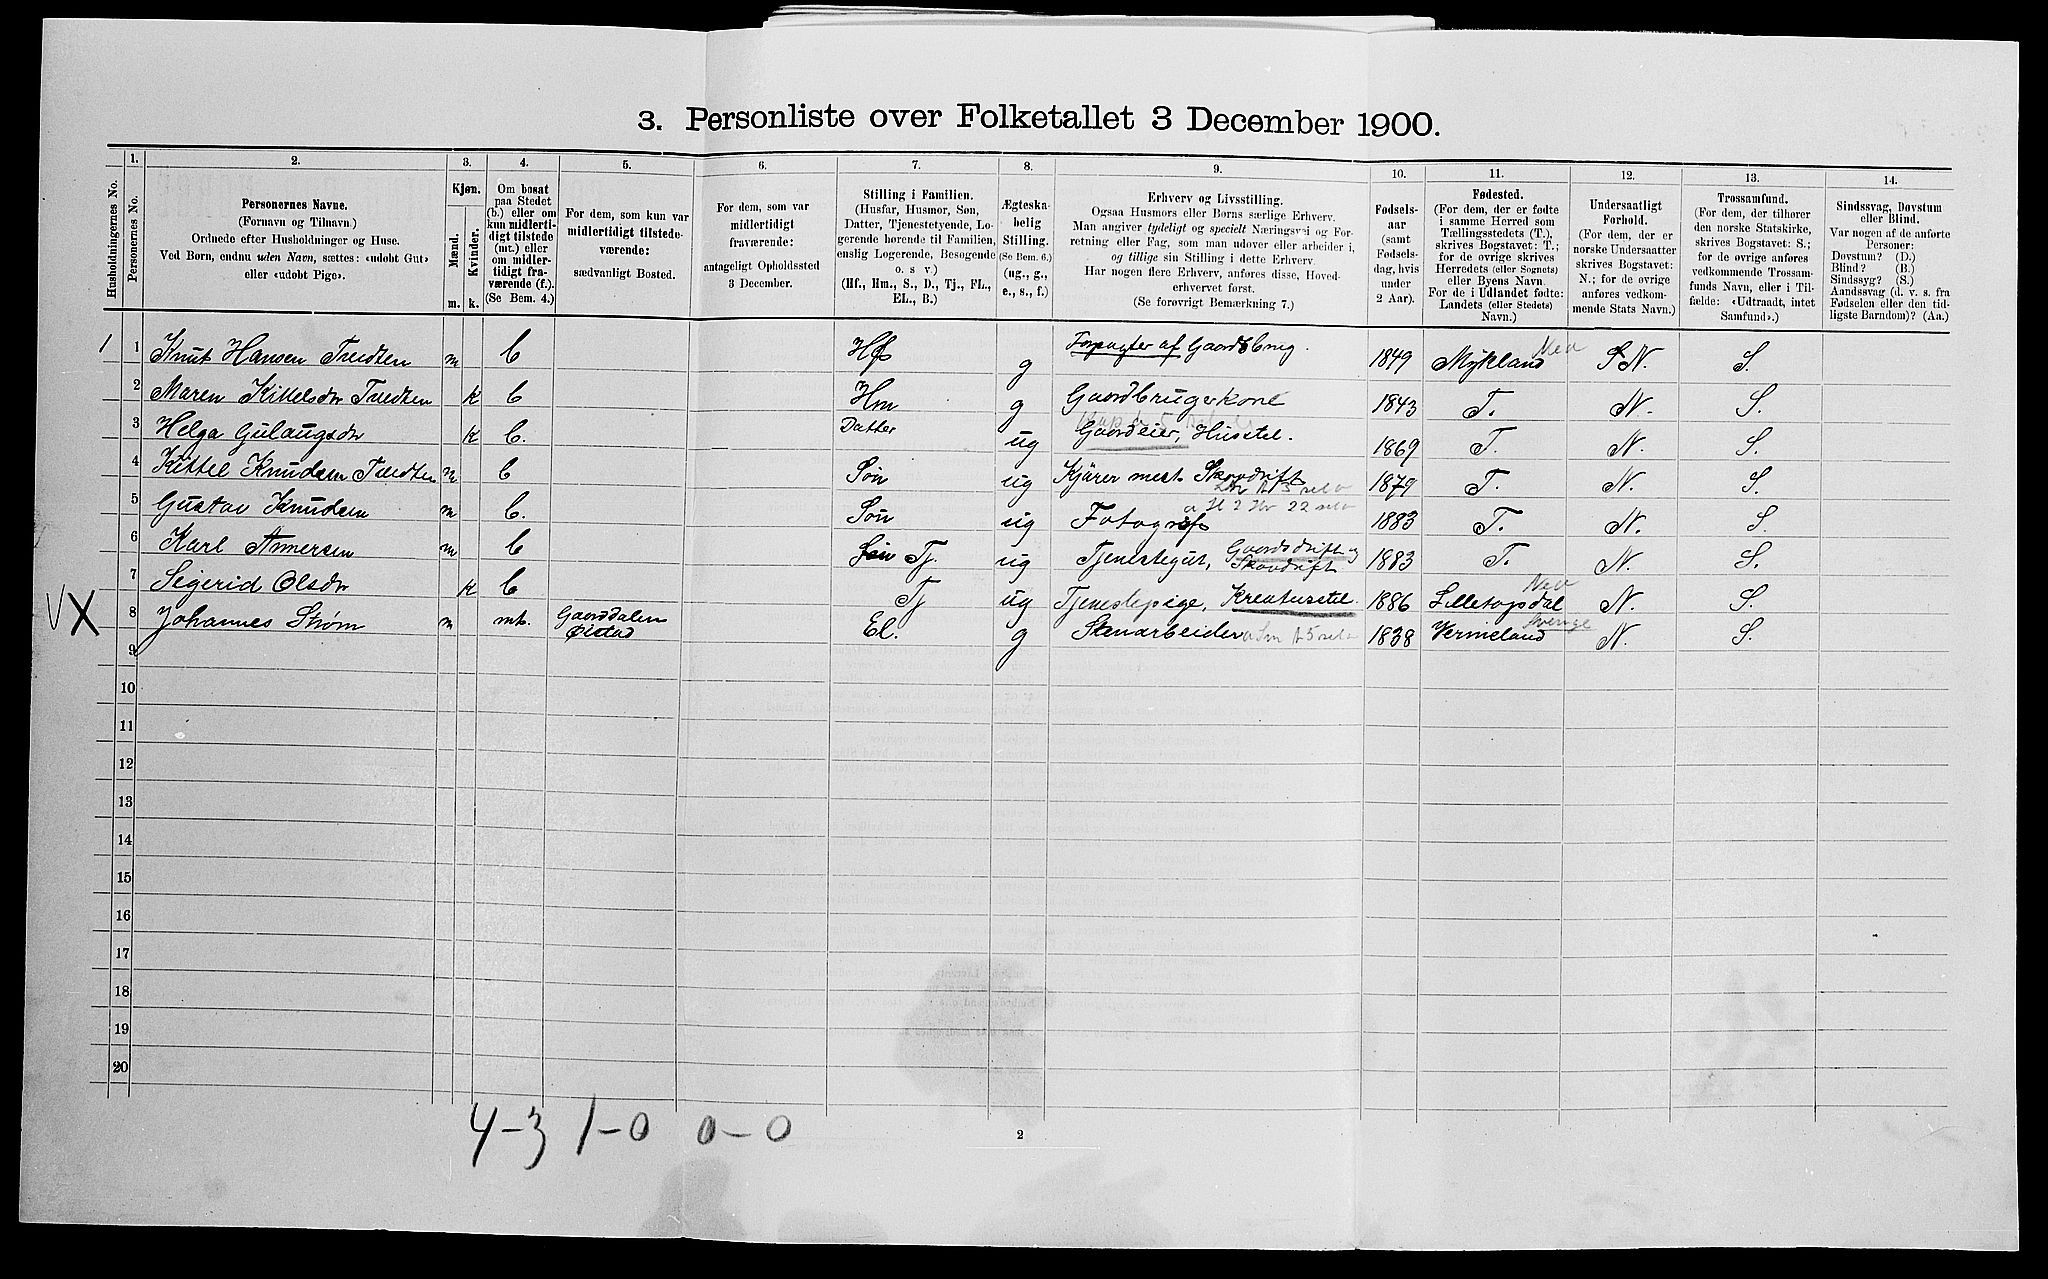 3. Personliste over Folketallet 3 December 1900.
1. 2. 3. 4. 5. 6. 7. 8. 9. 10. 11. 12. 13. 14.
Husholdningernes No.
Personernes No.
Personernes Navne.
(Fornavn og Tilnavn.)
Ordnede efter Husholdninger og Huse.
Ved Børn, endnu uden Navn, sættes: «udøbt Gut»
eller «udøbt Pige».
Kjøn.
Mænd.
Kvinder.
m. k.
Om bosat
paa Stedet
(b.) eller om
kun midlerti-
digt tilstede
(mt.) eller
om midler-
tidigt fra-
værende (f.).
(Se Bem. 4.)
For dem, som kun var
midlertidigt tilstede-
værende:
sædvanligt Bosted.
For dem, som var
midlertidigt
fraværende:
antageligt Opholdssted
3 December.
Stilling i Familien.
(Husfar, Husmor, Søn,
Datter, Tjenestetyende, Lo-
gerende hørende til Familien,
enslig Logerende, Besøgende
o. s. v.)
(Hf., Hm., S., D., Tj., FL.,
EL., B.)
Ægteska-
belig
Stilling.
(Se Bem. 6.)
(ug., g.,
e., s., f.)
Erhverv og Livsstilling.
Ogsaa Husmors eller Børns særlige Erhverv.
Man angiver tydeligt og specielt Næringsvei og For-
retning eller Fag, som man udøver eller arbeider i,
og tillige sin Stilling i dette Erhverv.
Har nogen flere Erhverv, anføres disse, Hoved-
erhvervet først.
(Se forøvrigt Bemærkning 7.)
Fødsels-
aar
(samt
Fødsels-
dag, hvis
under
2 Aar).
Fødested.
(For dem, der er fødte
i samme Herred som
Tællingsstedets (T.),
skrives Bogstavet: T.;
for de øvrige skrives
Herredets (eller Sognets)
eller Byens Navn.
For de i Udlandet fødte:
Landets (eller Stedets)
Navn.)
Undersaatligt
Forhold.
(For dem, der er
norske Undersaatter
skrives Bogstavet:
N.; for de øvrige
anføres vedkom-
mende Stats Navn.)
Trossamfund.
(For dem, der tilhører
den norske Statskirke,
skrives Bogstavet: S.;
for de øvrige anføres
vedkommende Trossam-
funds Navn, eller i Til-
fælde: «Udtraadt, intet
Samfund».)
Sindssvag, Døvstum
eller Blind.
Var nogen af de anførte
Personer:
Døvstum? (D.)
Blind? (B.)
Sindssyg? (S.)
Aandssvag (d. v. s. fra
Fødselen eller den tid-
ligste Barndom)? (Aa.)
1 1 Knut Hansen Tredten m b Hf g Forpagter af Gaardsbrug. 1849 Mykland Ned N. S.
2 Maren Kittelsdr Tredten k b Hm g Gaardbrugerkone 1843 T. N. S.
3 Helga Gulaugsdr k b. Datter ug Gaardeier, Husstel. 1869 T. N. S.
4 Kittel Knudsen Tredten m b Søn ug Kjører mest Skovdrift 1879 T. N. S.
5 Gustav Knudsen m b. Søn ug Fotograf 1883 T. N. S.
6 Karl Annersen m b Tj. ug Tjenestegut, Gaardsdrift og Skovdrift 1883 T. N. S.
7 Sigerid Olsdr k b Tj ug Tjenestepige, Kreaturstel. 1886 Lilletopsdal Ned N. S.
V X 8 Johannes Strøm m mt. Gaardsdalen Øistad El. g Stenarbeider 1838 Vermeland Sverige N. S.
9
10
11
12
13
14
15
16
17
18
19
20
4-3 1-0 0-0
2